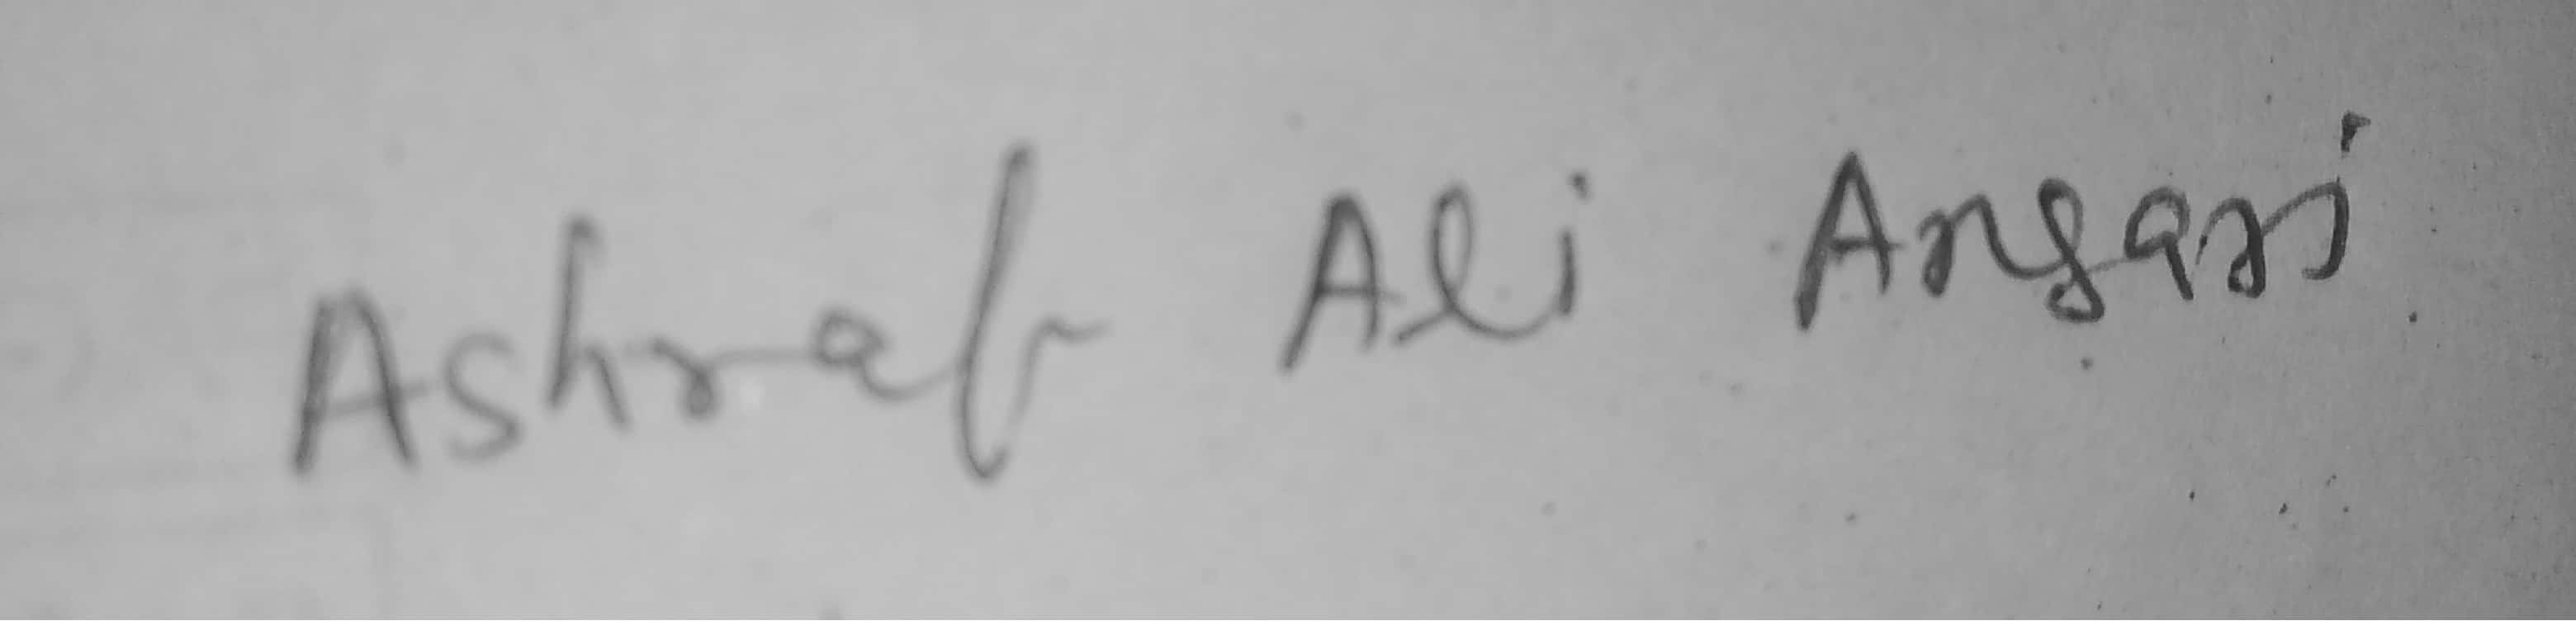 Ashraf Ali Ansari